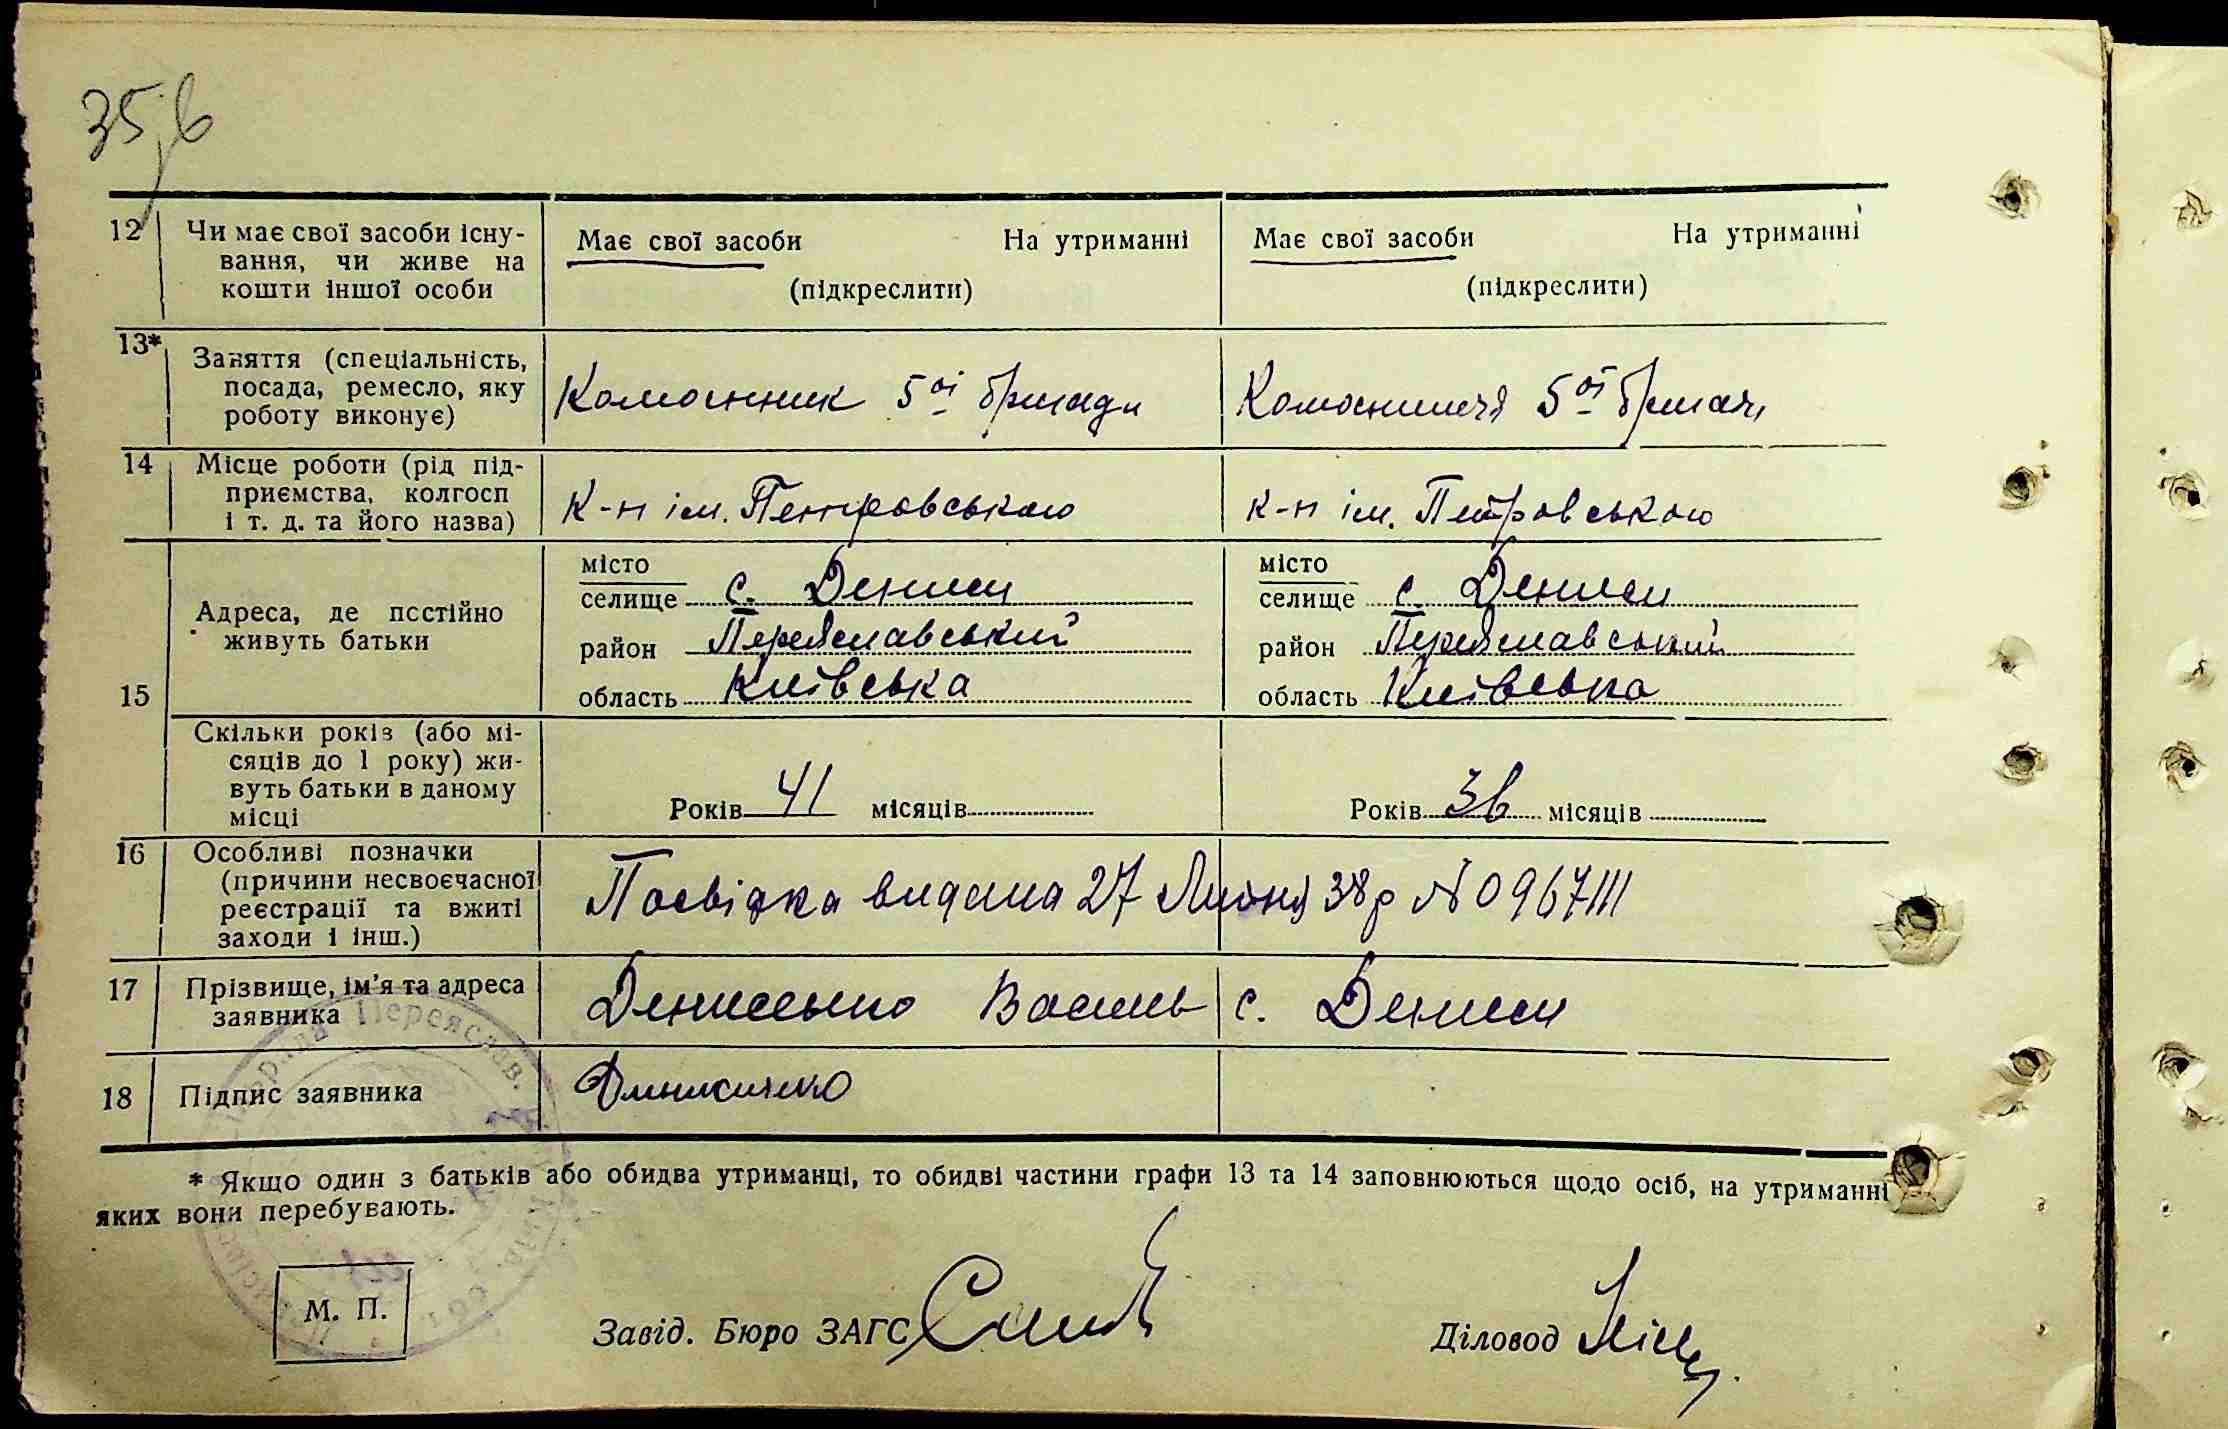 35
12 Чи має свої засоби існу-
вання, чи живе на
кошти іншої особи
Має свої засоби На утриманні
(підкреслити)
Має свої засоби На утриманні
(підкреслити)
13* Заняття (спеціальність,
посада, ремесло, яку
роботу виконує)
Колгоспник 5ої бригади
Колгоспниця 5ої бригади
14 Місце роботи (рід під-
приємства, колгосп
і т. д. та його назва)
к-п ім. Петровського
к-п ім. Петровського
15 Адреса, де постійно
живуть батьки
місто
селище с. Дениси
район Переяславський
область Київська
місто
селище с. Дениси
район Переяславський
область Київська
Скільки років (або мі-
сяців до 1 року) жи-
вуть батьки в даному
місці
Років 41 місяців
Років 36 місяців
16 Особливі позначки
(причини несвоєчасної
реєстрації та вжиті
заходи і інш.)
Посвідка видана 27 Липня 38р №
17 Прізвище, ім'я та адреса
заявника
Денисенко Василь с. Дениси
18 Підпис заявника
Денисенко
* Якщо один з батьків або обидва утриманці, то обидві частини графи 13 та 14 заповнюються щодо осіб, на утриманні
яких вони перебувають.
М. П.
Завід. Бюро ЗАГС
Діловод